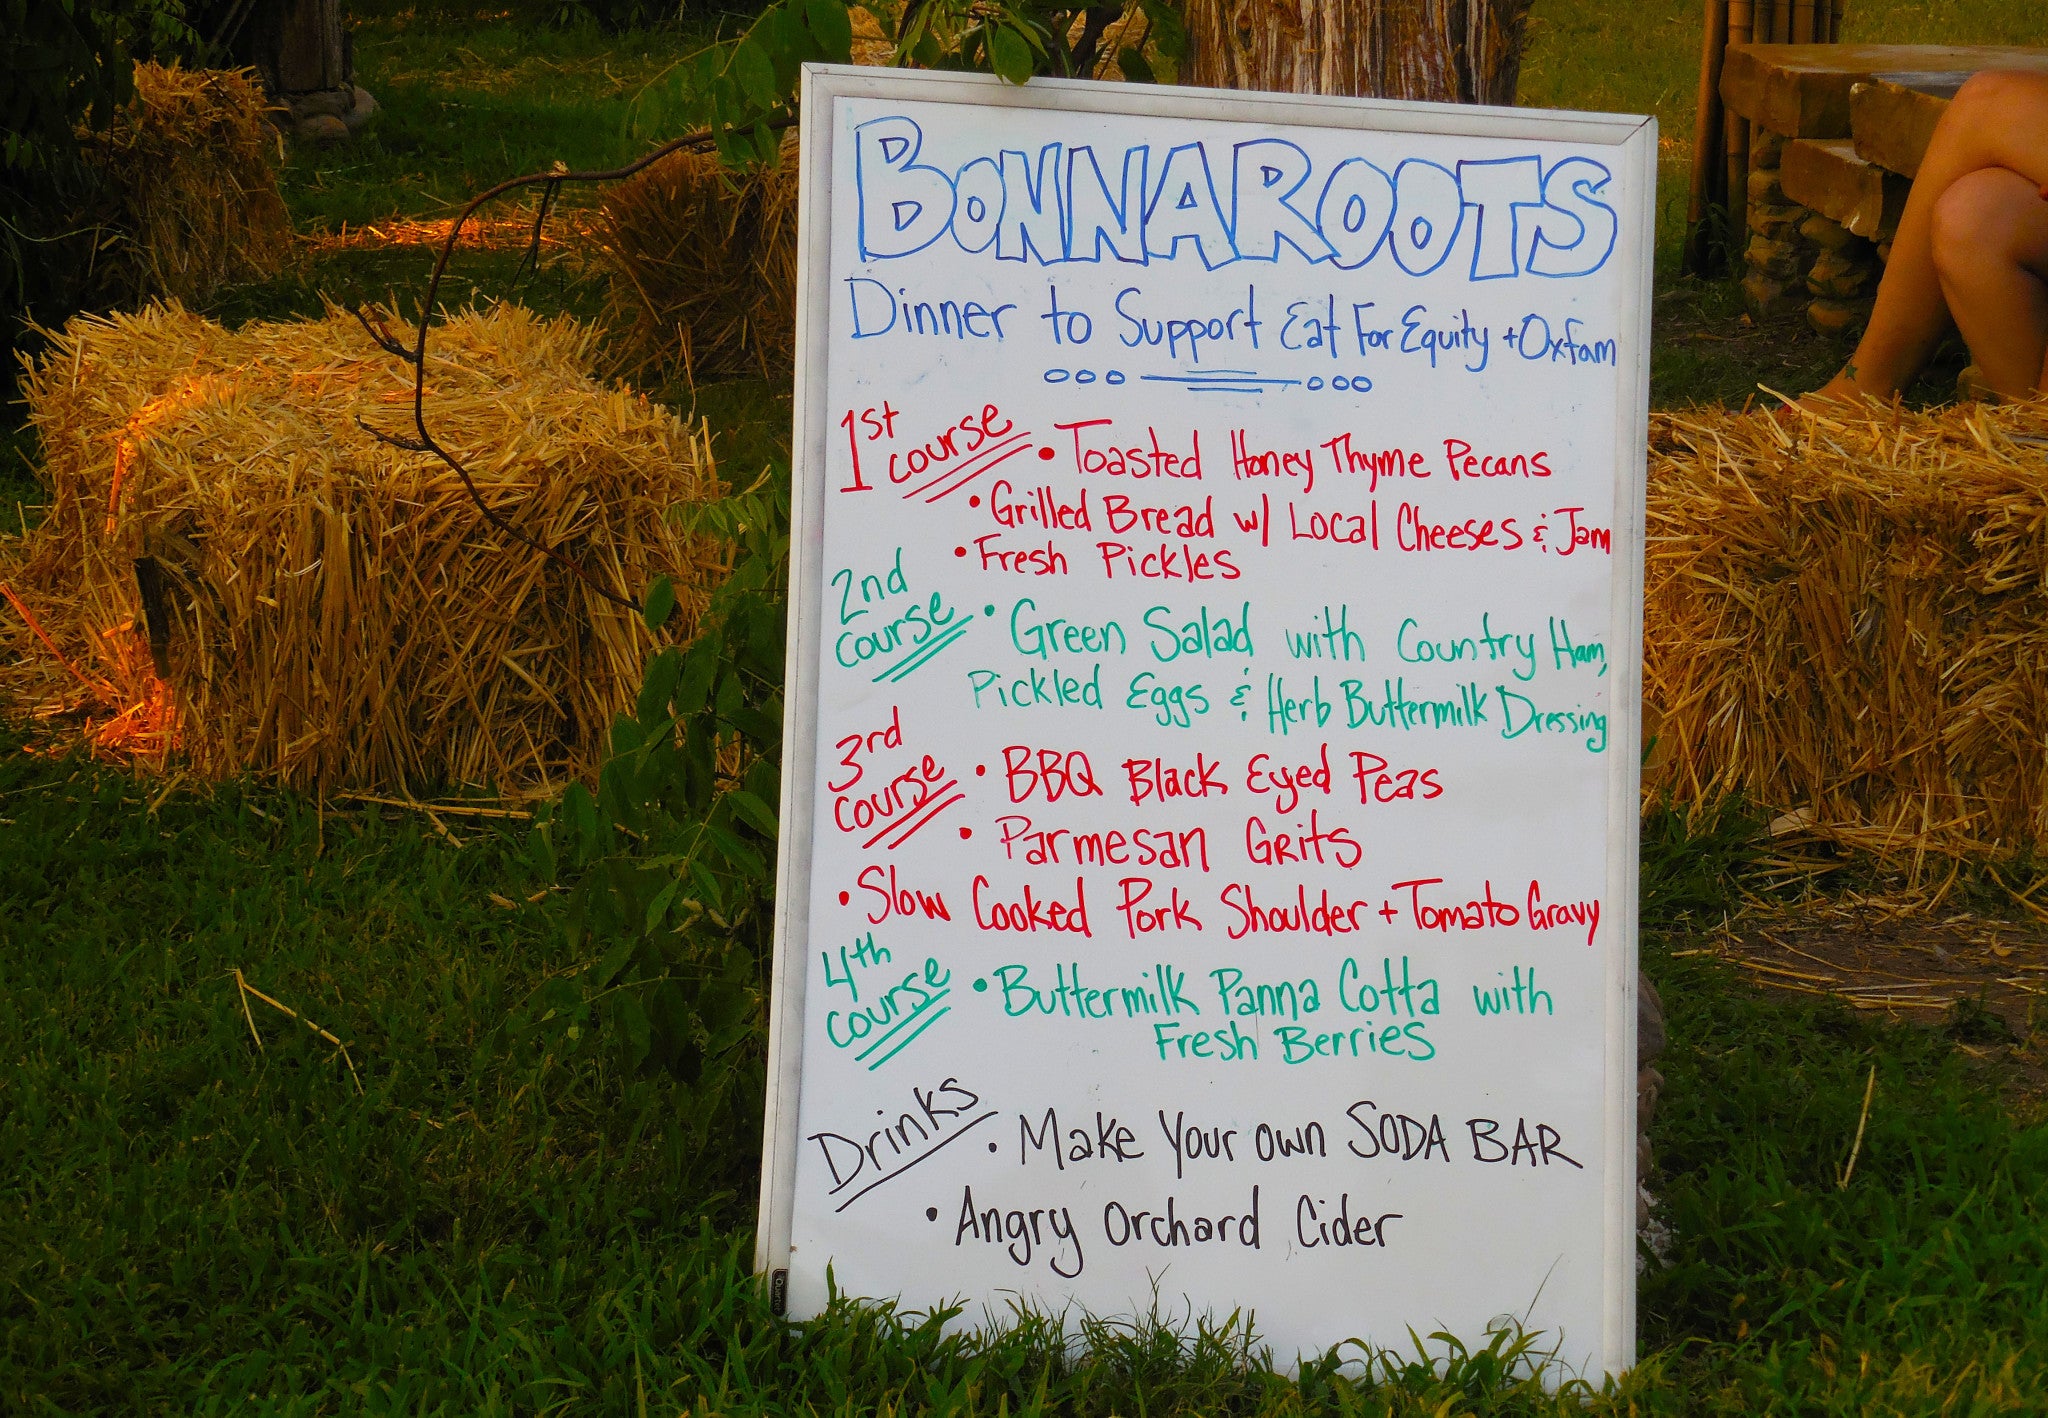 BONNAROOTS
Dinner to Support Eat For Equity + Oxfam
1st course
• Toasted Honey Thyme Pecans
• Grilled Bread w/ Local Cheeses & Jam
• Fresh Pickles
2nd course
• Green Salad with Country Ham,
Pickled Eggs & Herb Buttermilk Dressing
3rd course
• BBQ Black Eyed Peas
• Parmesan Grits
• Slow Cooked Pork Shoulder + Tomato Gravy
4th course
• Buttermilk Panna Cotta with
Fresh Berries
Drinks
• Make Your own SODA BAR
• Angry Orchard Cider
Quartet